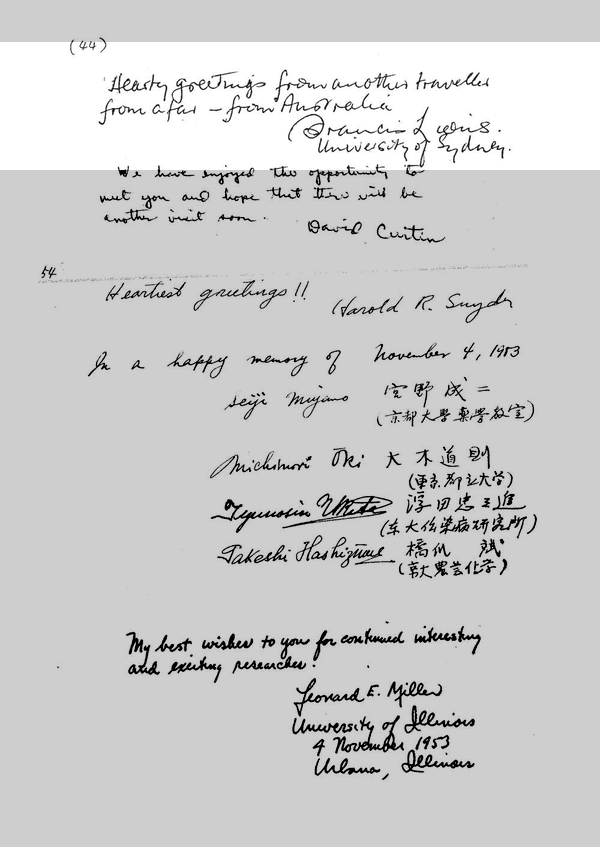 (44)
Hearty greetings from another traveller
from afar – from Australia
Francis Lions.
University of Sydney.
We have enjoyed the opportunity to
meet you and hope that there will be
another visit soon.
David Curtin
54
Heartiest greetings!!
Harold R. Snyder
In a happy memory of November 4, 1953
Seiji Miyano 宮野成二
(京都大學薬学教室)
Michinori Ōki 大木道則
(東京都立大学)
浮田忠之進
(东大伝染病研究所)
Takeshi Hashizume 橋爪 斌
(京大農芸化学)
My best wishes to you for continued interesting
and exciting researches!
Leonard E. Miller
University of Illinois
4 November 1953
Urbana, Illinois